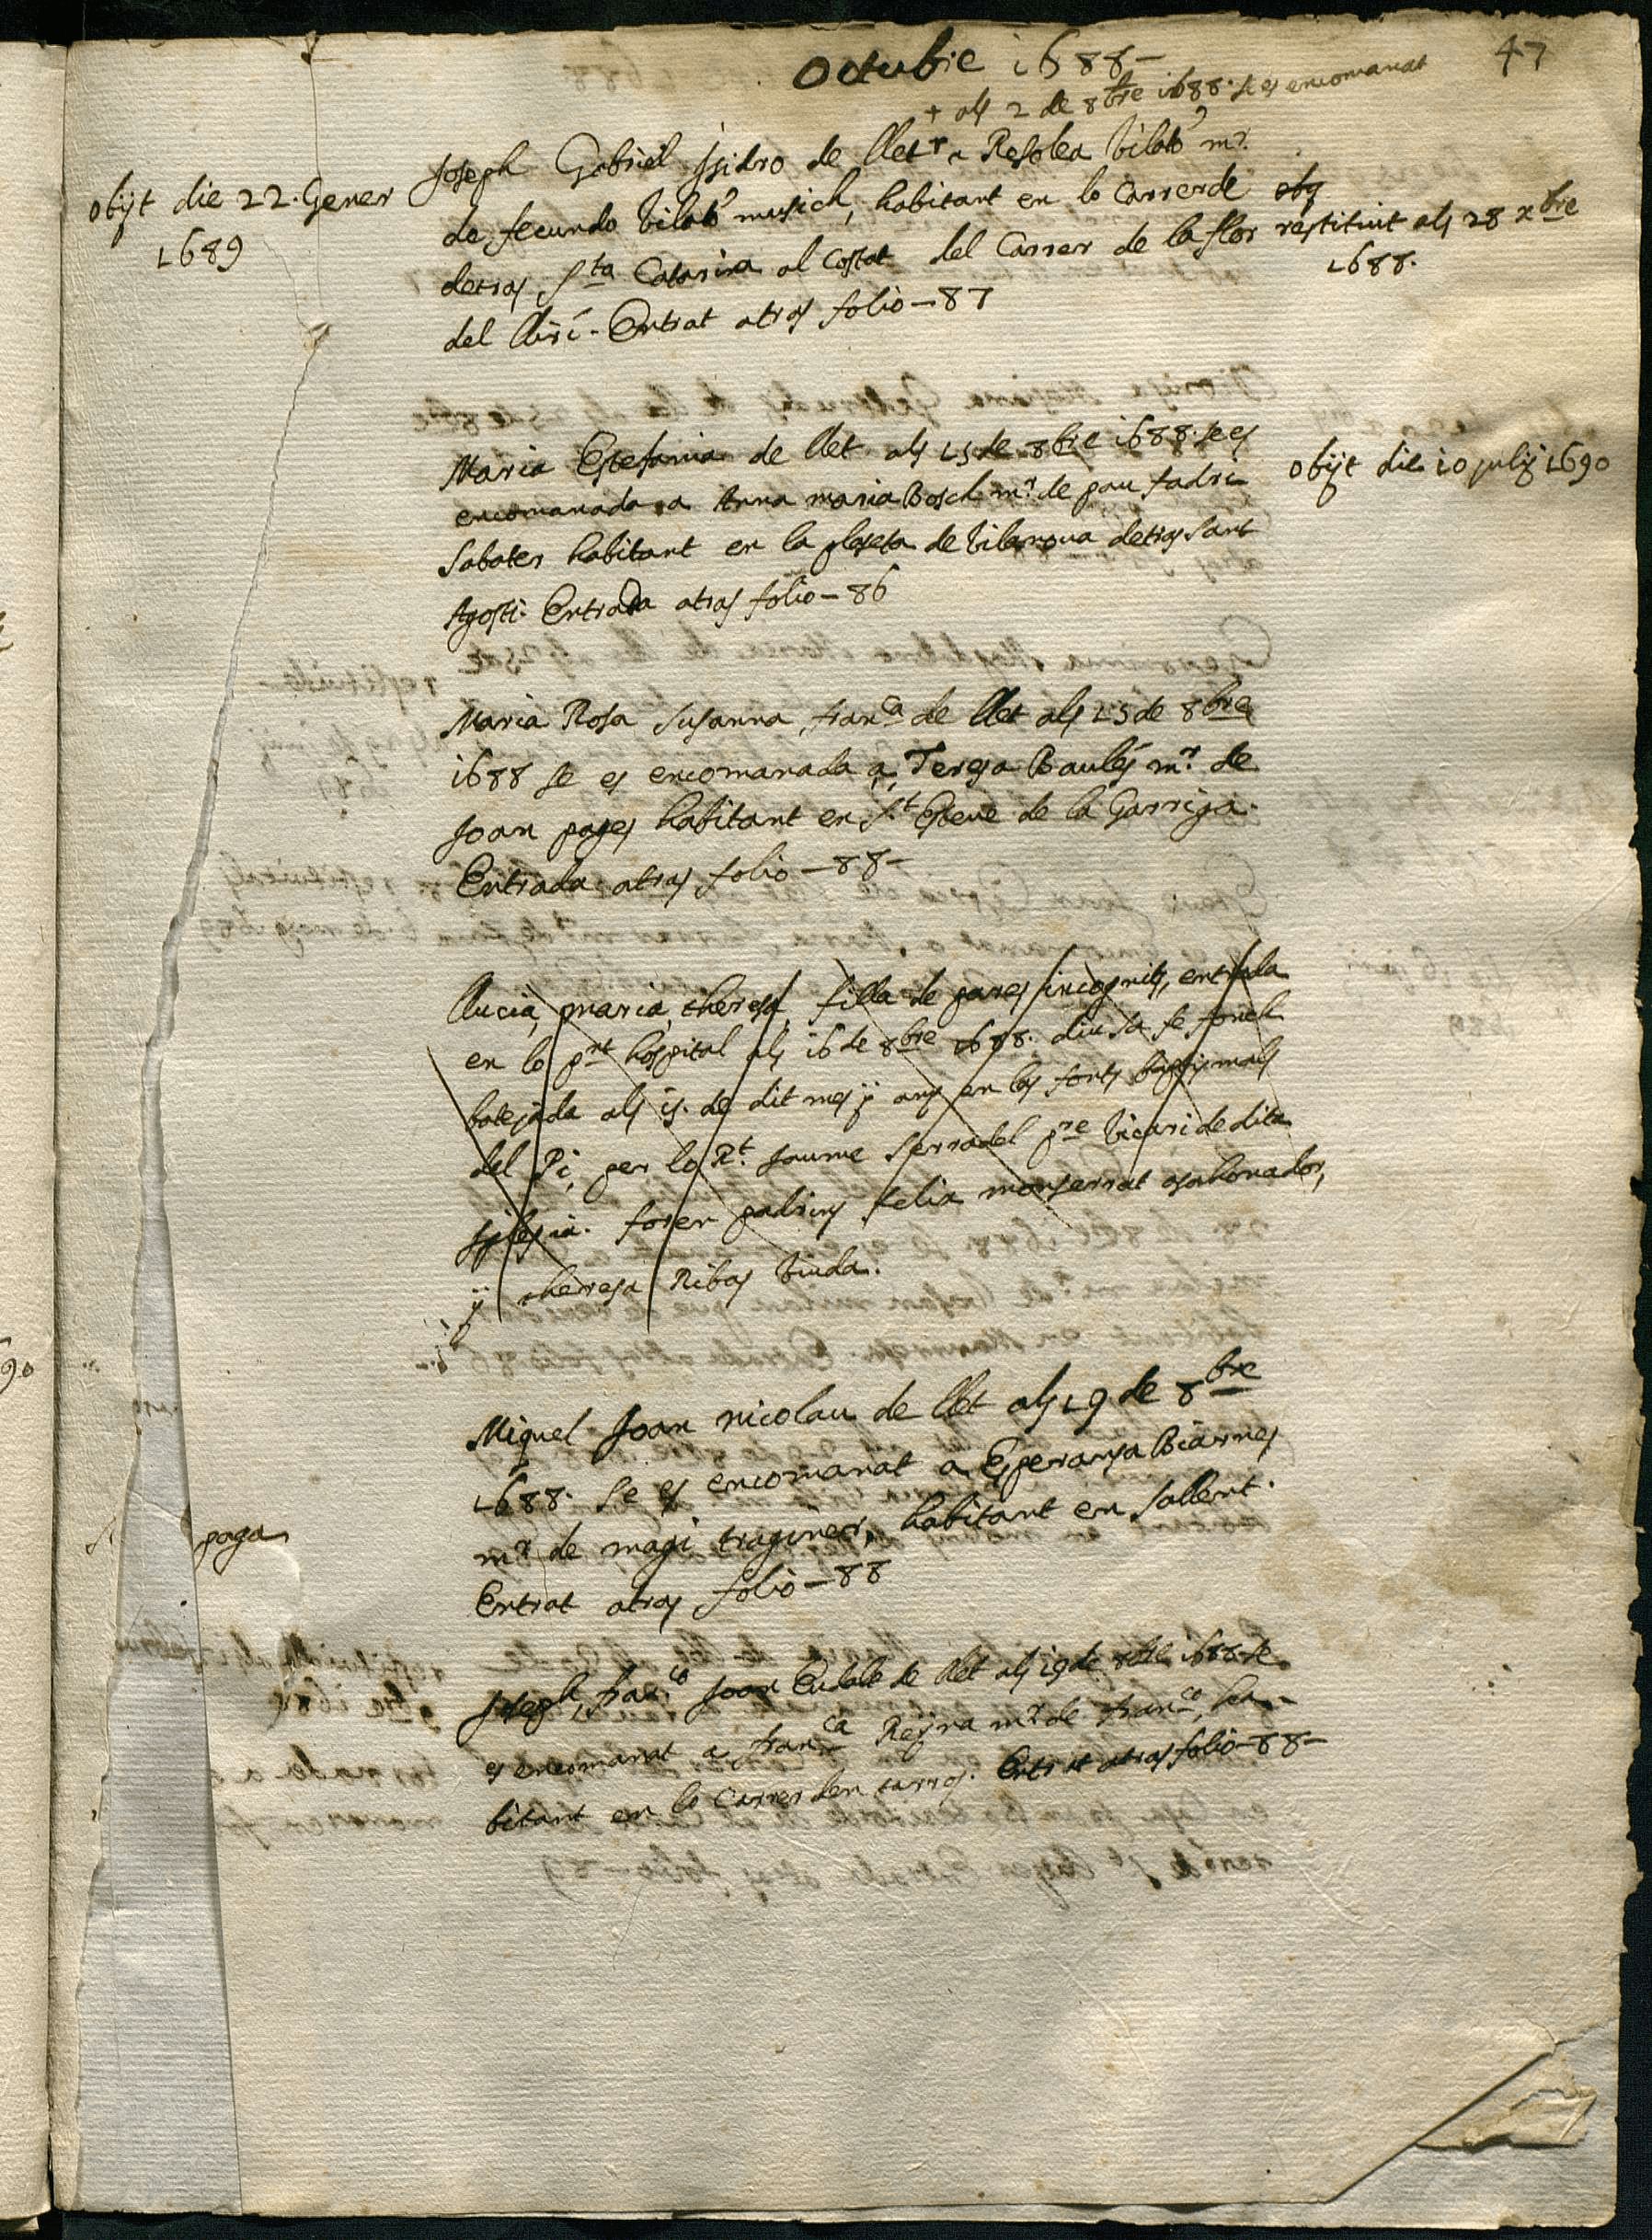 47
Octubre 1688 –
+ als 2 de 8bre 1688. se es encomanat
Joseph Gabriel Isidro de llet + a Vilalo mr.
de fecundo Vilalo musich, habitant en lo Carrer de
detras Sta Catarina al Costat del Carrer de la flor
del lliri. Entrat atras folio – 87
obijt die 22. Gener
1689
obij
restituit als 28 xbre
1688.
Maria Estefania de llet als 15 de 8bre 1688. se es
encomanada a Anna maria Bosch mr. de pau fadri
Sabater habitant en la plaseta de Vilanova detras sant
Agosti. Entrada atras folio – 86
obijt die 10 julij 1690
Maria Rosa Susanna, franca de llet als 15 de 8bre
1688 se es encomanada a Teresa Baules mr. de
Joan pages habitant en St. Esteve de la Garriga.
Entrada atras folio – 88 –
Llucia, maria, theresa, filla de pares incognits, entrada
en lo pnt hospital als 16 de 8bre 1688. diu sa fe fonch
batejada als 15. de dit mes y any en las fonts baptismals
del Pi, per lo Rt. Jaume Serradel pre Vicari de dita
Iglesia. foren padrins Felix monserrat asahonador,
y theresa Ribas Viuda.
Miquel Joan nicolau de llet als 19 de 8bre
1688. se es encomanat a Esperansa Biarnes
mr. de magi traginer, habitant en Sallent.
Entrat atras folio – 88
paga
Joseph, franco Joan Eudalt de llet als 19 de 8bre 1688. se
es encomanat a franca Reyna mr. de franco, ha-
bitant en lo Carrer den tarros. Entrat atras folio – 88 –